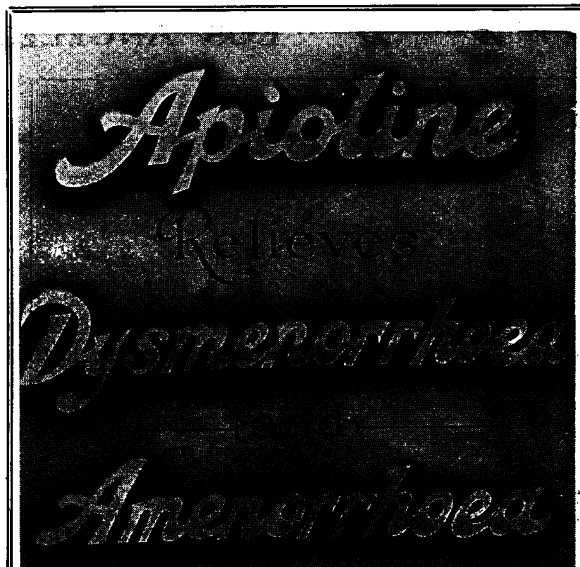 Apioline
Relieves
Dysmenorrhoea
Amenorrhoea